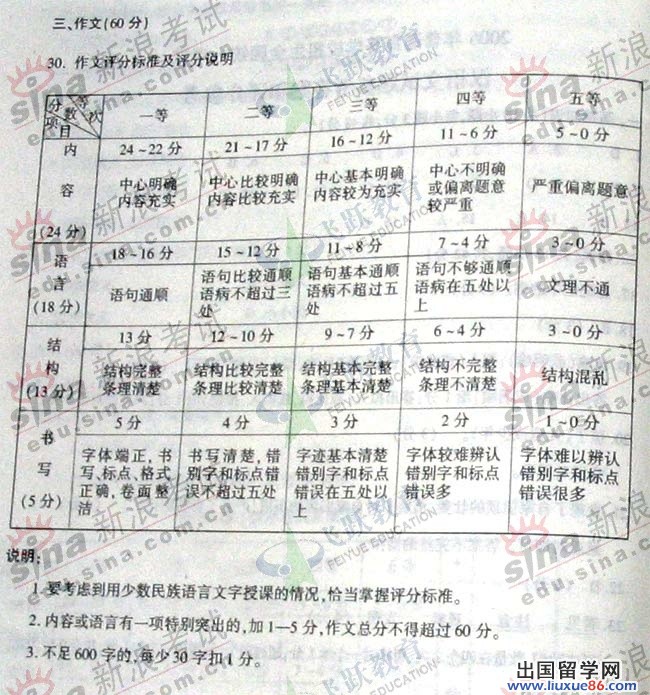 三、作文(60分)
30. 作文评分标准及评分说明
分数 等次 项目
一等
二等
三等
四等
五等
内容
(24分)
24~22分
21~17分
16~12分
11~6分
5~0分
中心明确
内容充实
中心比较明确
内容比较充实
中心基本明确
内容较为充实
中心不明确
或偏离题意
较严重
严重偏离题意
语言
(18分)
18~16分
15~12分
11~8分
7~4分
3~0分
语句通顺
语句比较通顺
语病不超过三
处
语句基本通顺
语病不超过五
处
语句不够通顺
语病在五处以
上
文理不通
结构
(13分)
13分
12~10分
9~7分
6~4分
3~0分
结构完整
条理清楚
结构比较完整
条理比较清楚
结构基本完整
条理基本清楚
结构不完整
条理不清楚
结构混乱
书写
(5分)
5分
4分
3分
2分
1~0分
字体端正,书
写、标点、格式
正确,卷面整
洁
书写清楚,错
别字和标点错
误不超过五处
字迹基本清楚
错别字和标点
错误在五处以
上
字体较难辨认
错别字和标点
错误多
字体难以辨认
错别字和标点
错误很多
说明:
1. 要考虑到用少数民族语言文字授课的情况,恰当掌握评分标准。
2. 内容或语言有一项特别突出的,加1—5分,作文总分不得超过60分。
3. 不足600字的,每少30字扣1分。
sina 新浪考试
edu.sina.com.cn
飞跃教育
FEIYUE EDUCATION
出国留学网
www.liuxue86.com